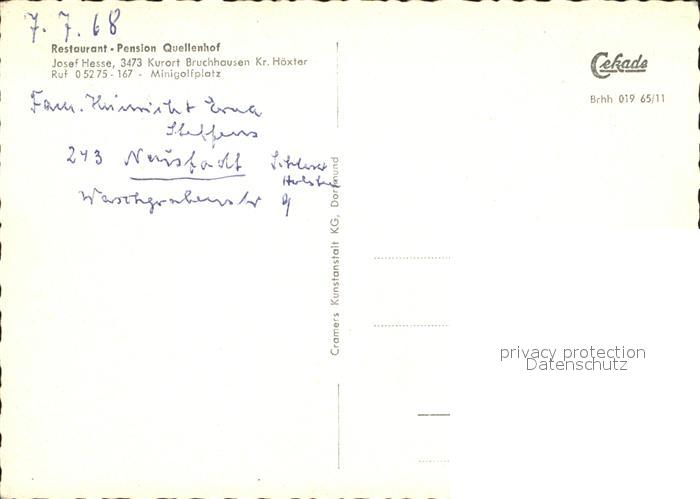 7.7.68
Restaurant - Pension Quellenhof
Josef Hesse, 3473 Kurort Bruchhausen Kr. Höxter
Ruf 05275-167 - Minigolfplatz
Fam. Heinrich + Erna
Steffens
243 Neustadt Schlesw
Holstein
Waschgrabenstr 9
Cekade
Brhh 019 65/11
Cramers Kunstanstalt KG, Dortmund
privacy protection
Datenschutz